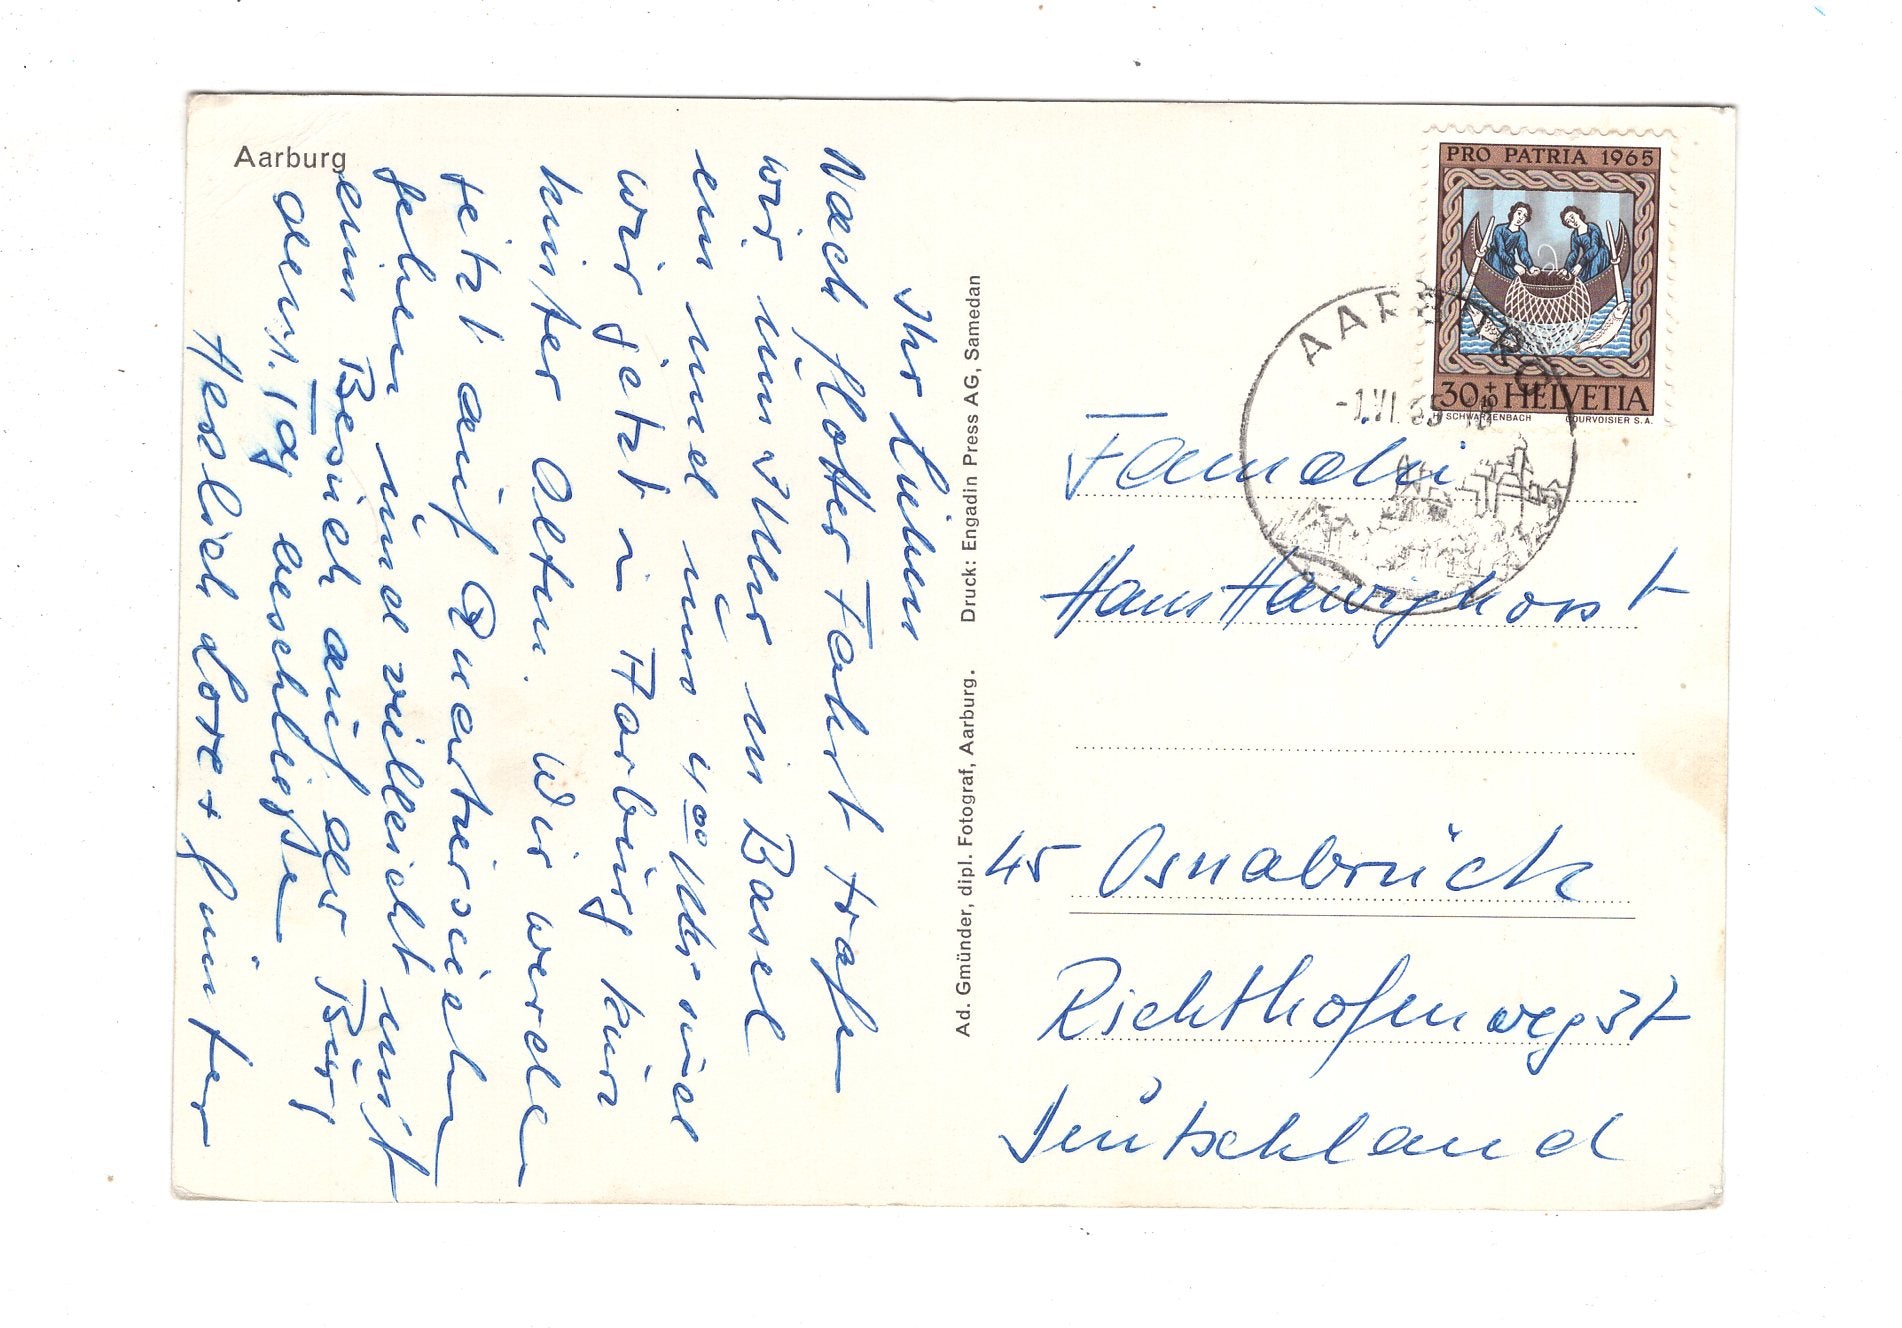 Aarburg
Ihr Lieben
Nach flotter Fahrt trafen
wir um Uhr in Basel
ein und um 4⁰⁰ Uhr sind
wir jetzt in Aarburg kurz
hinter Olten. Wir werden
jetzt auf Quartiersuche
gehen und vielleicht mit
ein Besuch auf der Burg
den 1. Tag beschließen
Herzlich Lore + Günter
Ad. Gmünder, dipl. Fotograf, Aarburg. Druck: Engadin Press AG, Samedan
PRO PATRIA 1965
30+10 HELVETIA
H. SCHWARZENBACH COURVOISIER S.A.
AARBURG
-1.VI.65-18
Hans Hawighorst
45 Osnabrück
Richthofenweg
Deutschland